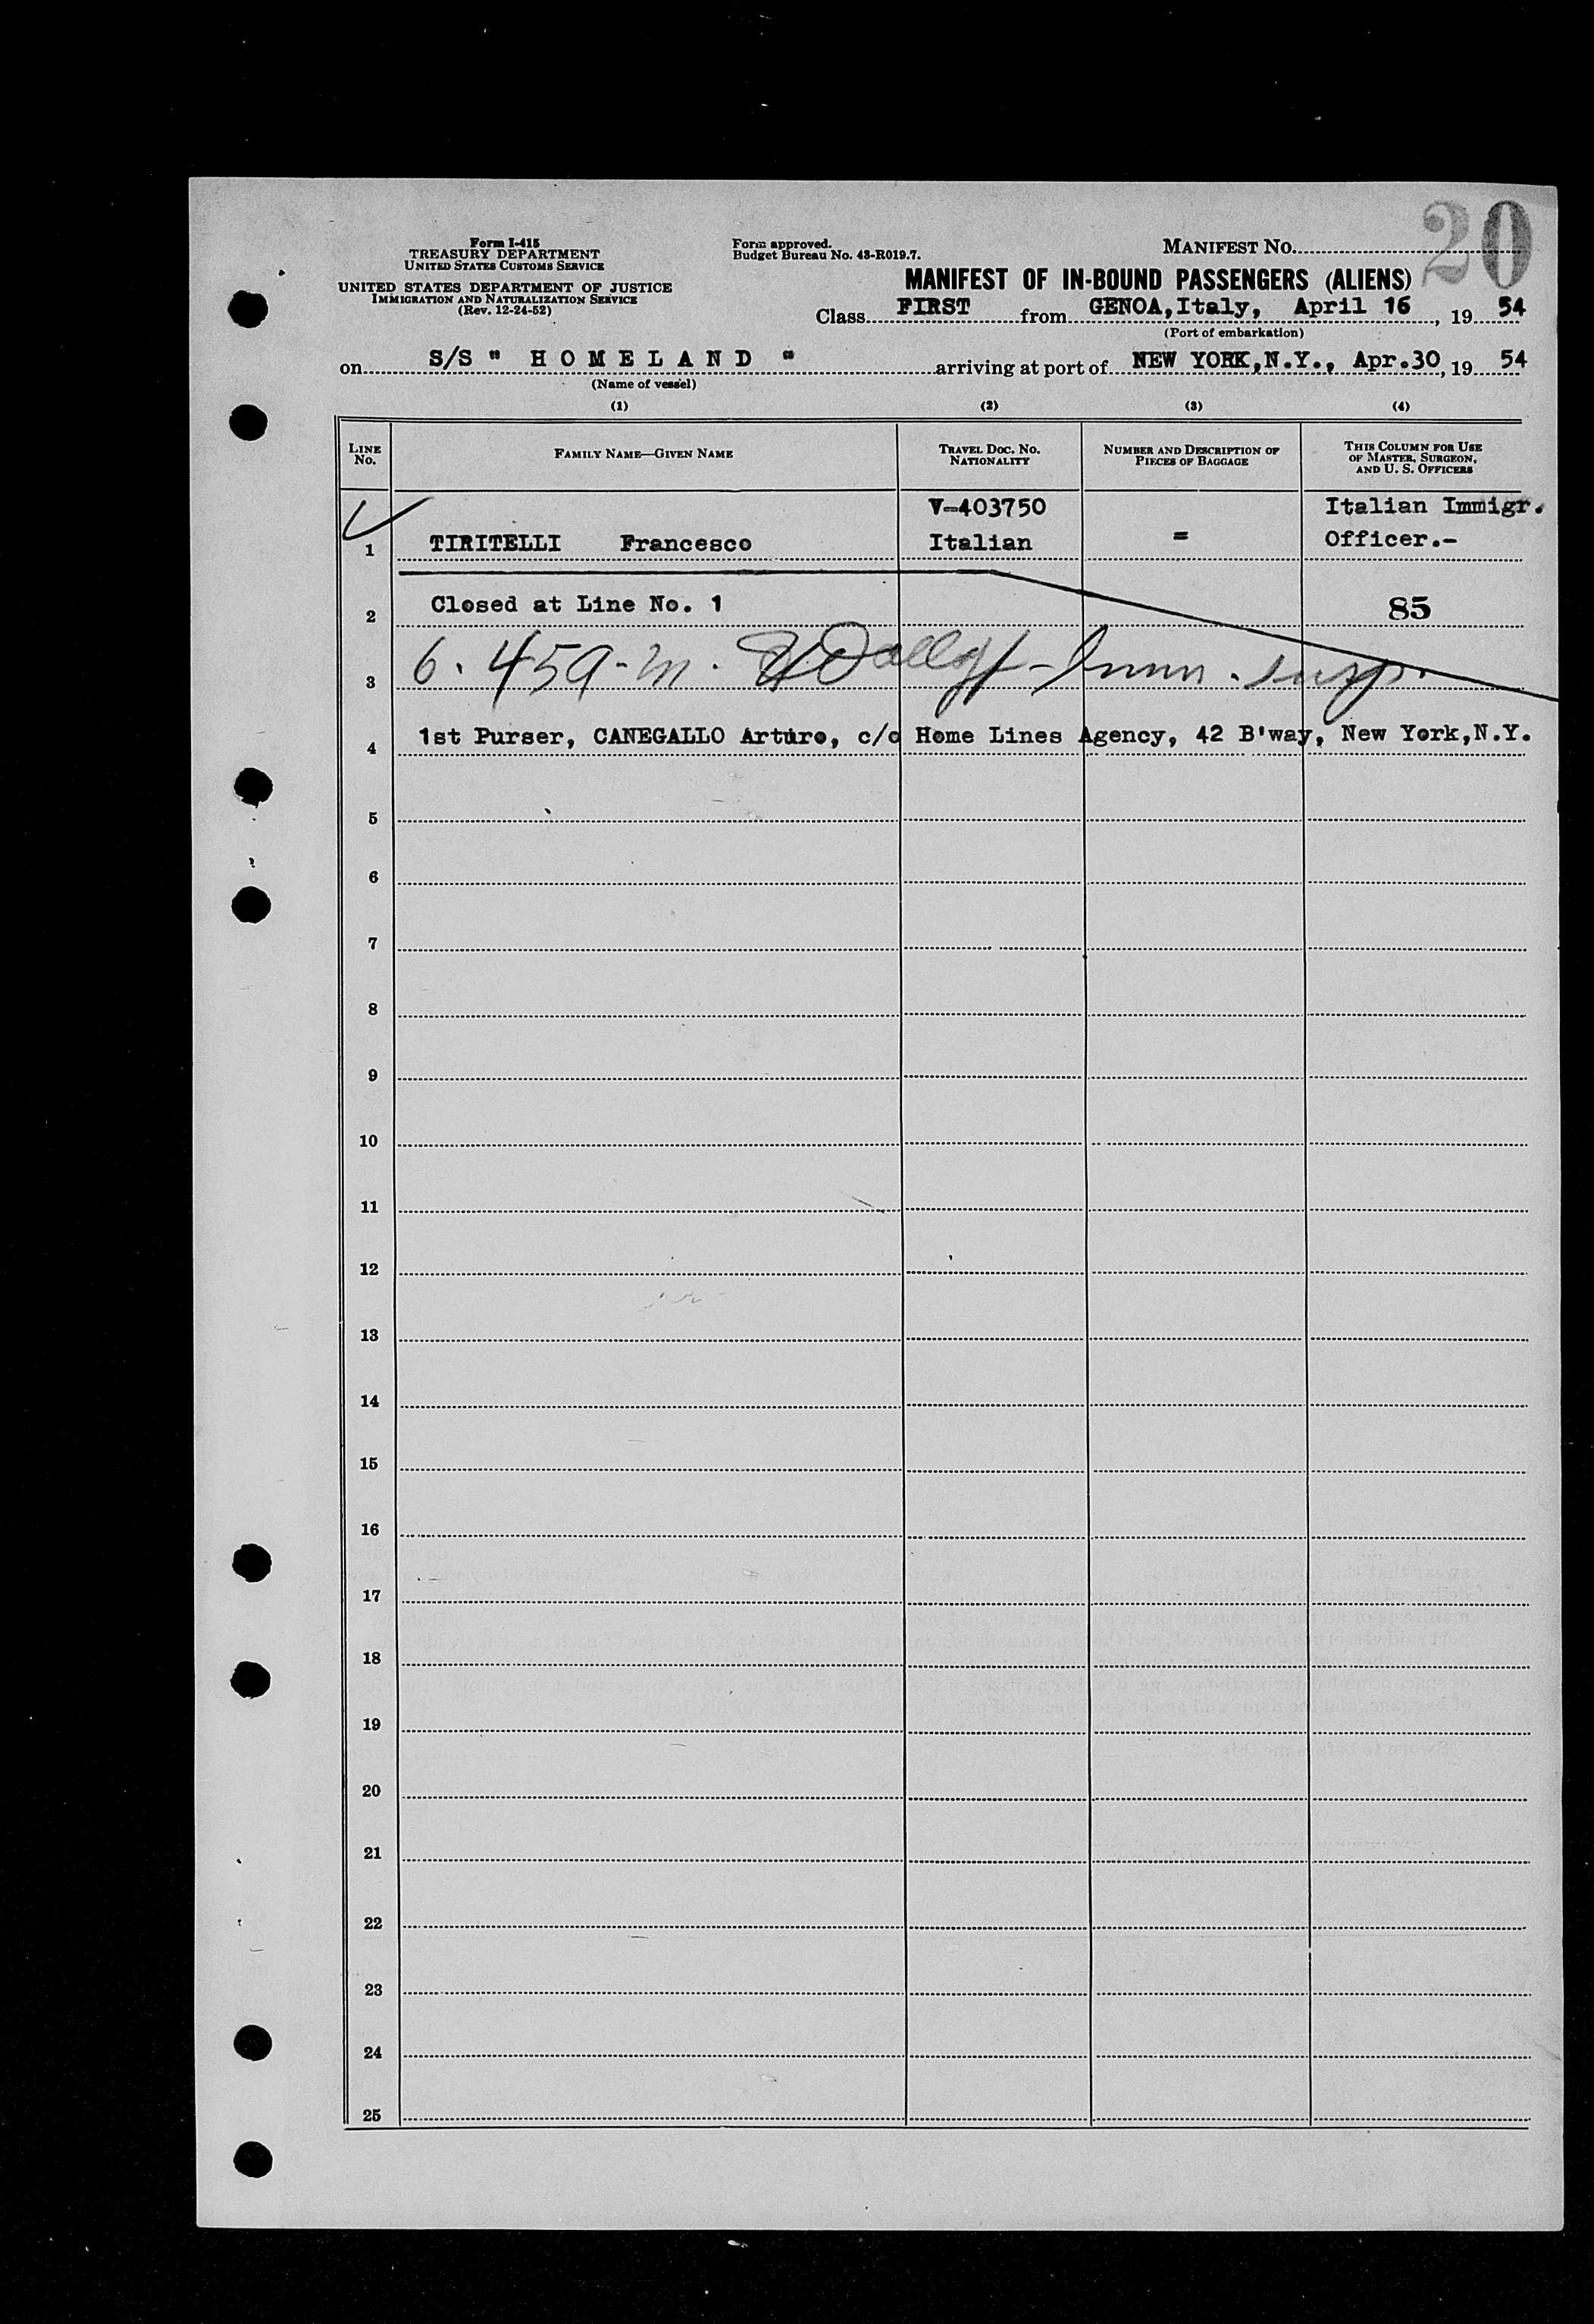 20
Form I-415
TREASURY DEPARTMENT
UNITED STATES CUSTOMS SERVICE
UNITED STATES DEPARTMENT OF JUSTICE
IMMIGRATION AND NATURALIZATION SERVICE
(Rev. 12-24-52)
Form approved.
Budget Bureau No. 43-R019.7.
MANIFEST NO.
MANIFEST OF IN-BOUND PASSENGERS (ALIENS)
Class FIRST from GENOA,Italy, April 16, 19 54
(Port of embarkation)
on S/S " H O M E L A N D " arriving at port of NEW YORK,N.Y., Apr.30, 19 54
(Name of vessel)
(1) (2) (3) (4)
LINE NO. FAMILY NAME—GIVEN NAME TRAVEL DOC. NO. NATIONALITY NUMBER AND DESCRIPTION OF PIECES OF BAGGAGE THIS COLUMN FOR USE OF MASTER, SURGEON, AND U. S. OFFICERS
V-403750 Italian Immigr.
1 TIRITELLI Francesco Italian = Officer.-
2 Closed at Line No. 1 85
3 6.45 a.m. Imm. Insp.
4 1st Purser, CANEGALLO Arturo, c/o Home Lines Agency, 42 B'way, New York,N.Y.
5
6
7
8
9
10
11
12
13
14
15
16
17
18
19
20
21
22
23
24
25